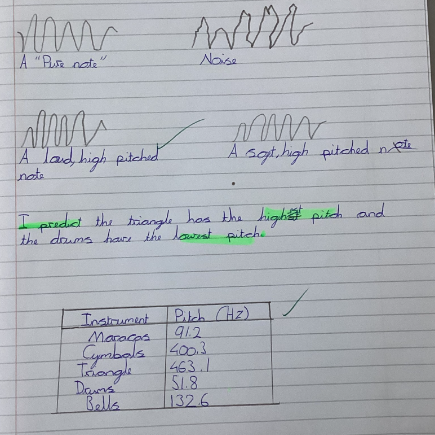 A "Pure note"
Noise
A loud, high pitched
note
A soft, high pitched note
I predict the triangle has the highest pitch and
the drums have the lowest pitch.
Instrument Pitch (Hz)
Maracas 91.2
Cymbals 400.3
Triangle 463.1
Drums 51.8
Bells 132.6